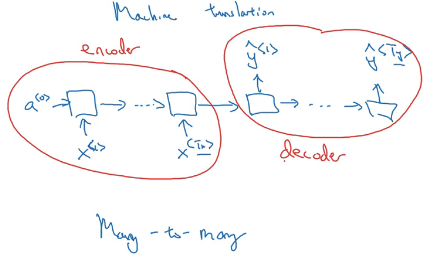 Machine translation
encoder
ŷ<1> ŷ<Ty>
a<0> → → ----> → → ... →
x<1> x<Tx>
decoder
Many-to-many